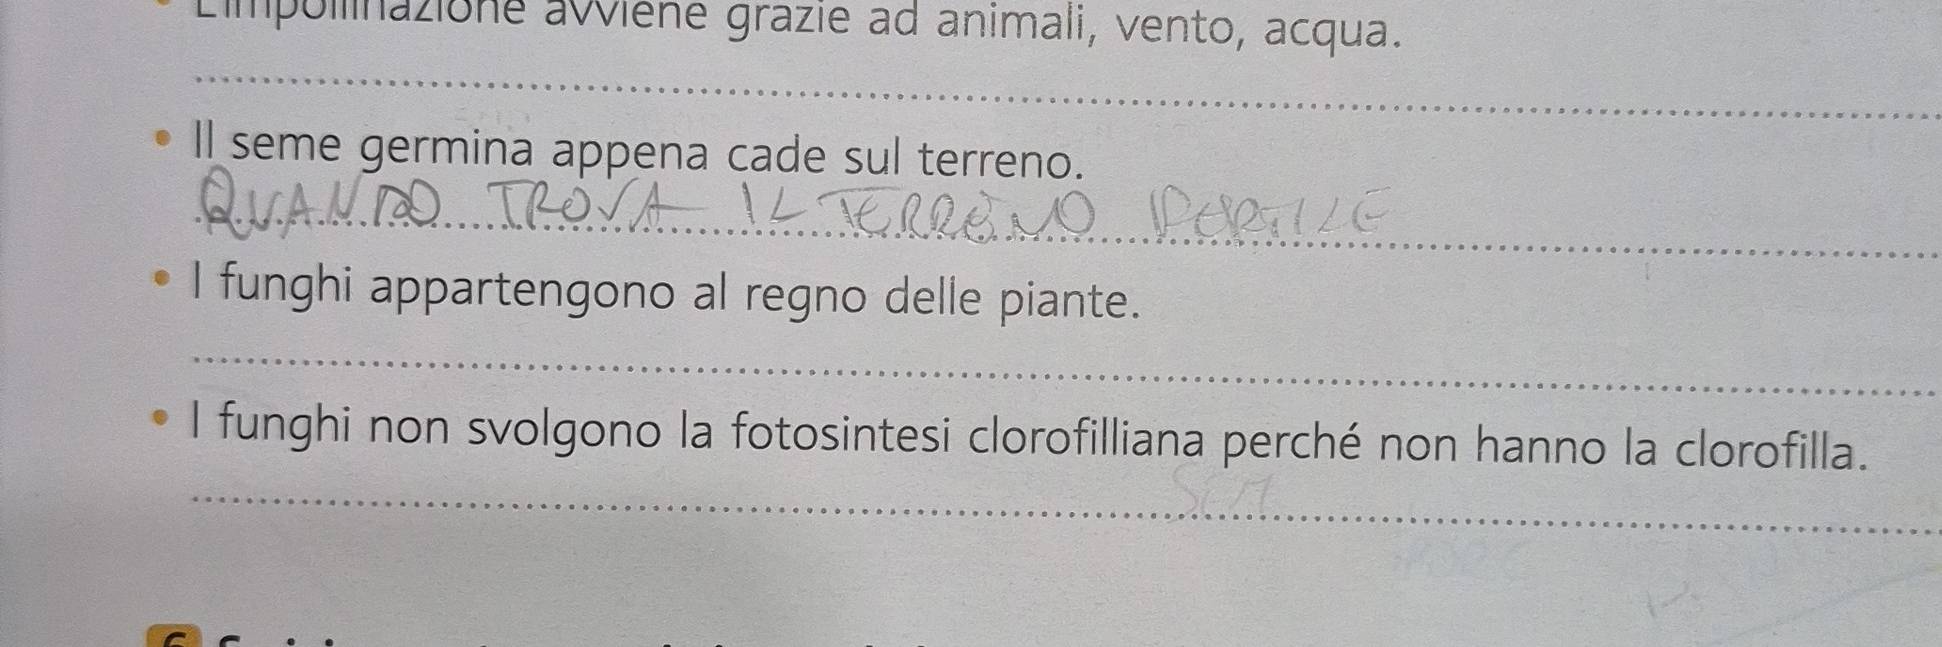 L'impollinazione avviene grazie ad animali, vento, acqua.
• Il seme germina appena cade sul terreno.
QUANDO TROVA IL TERRENO FERTILE
• I funghi appartengono al regno delle piante.
• I funghi non svolgono la fotosintesi clorofilliana perché non hanno la clorofilla.